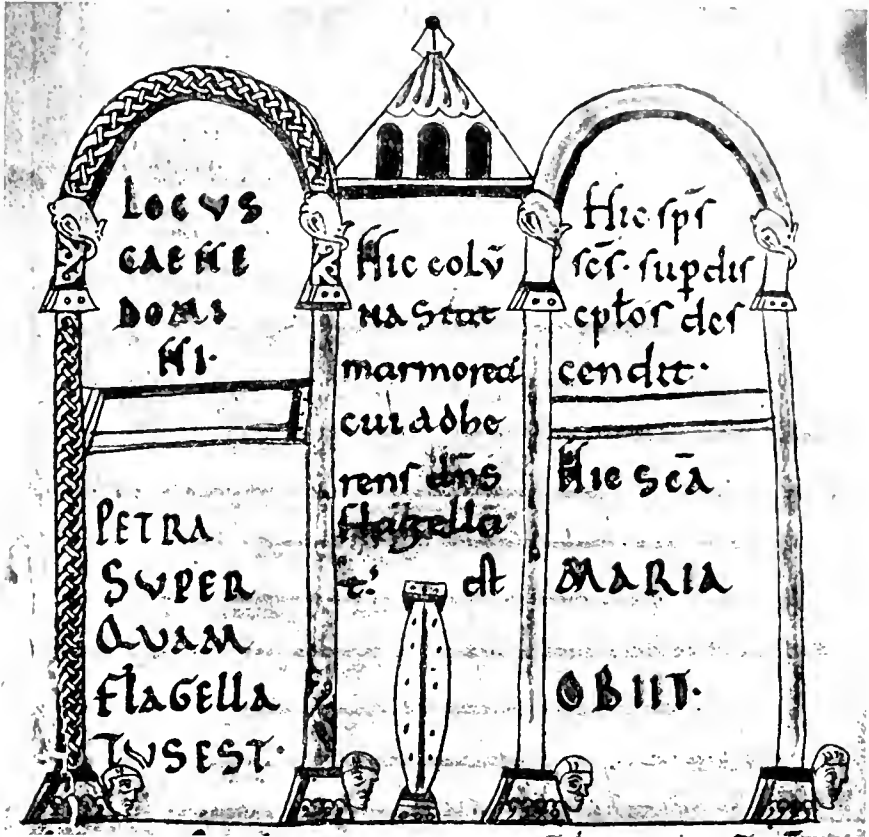 LOCUS
CAENE
DOMI
NI·
PETRA
SUPER
QUAM
FLAGELLA
TUS EST·
Hic colū
na stat
marmorea
cui adhe
rens dn̄s
flagella
t᷒ est
Hic sp̄s
sc̄s· sup̱ dis
cipłos des
cendit·
Hic sc̄a
MARIA
OBIIT·